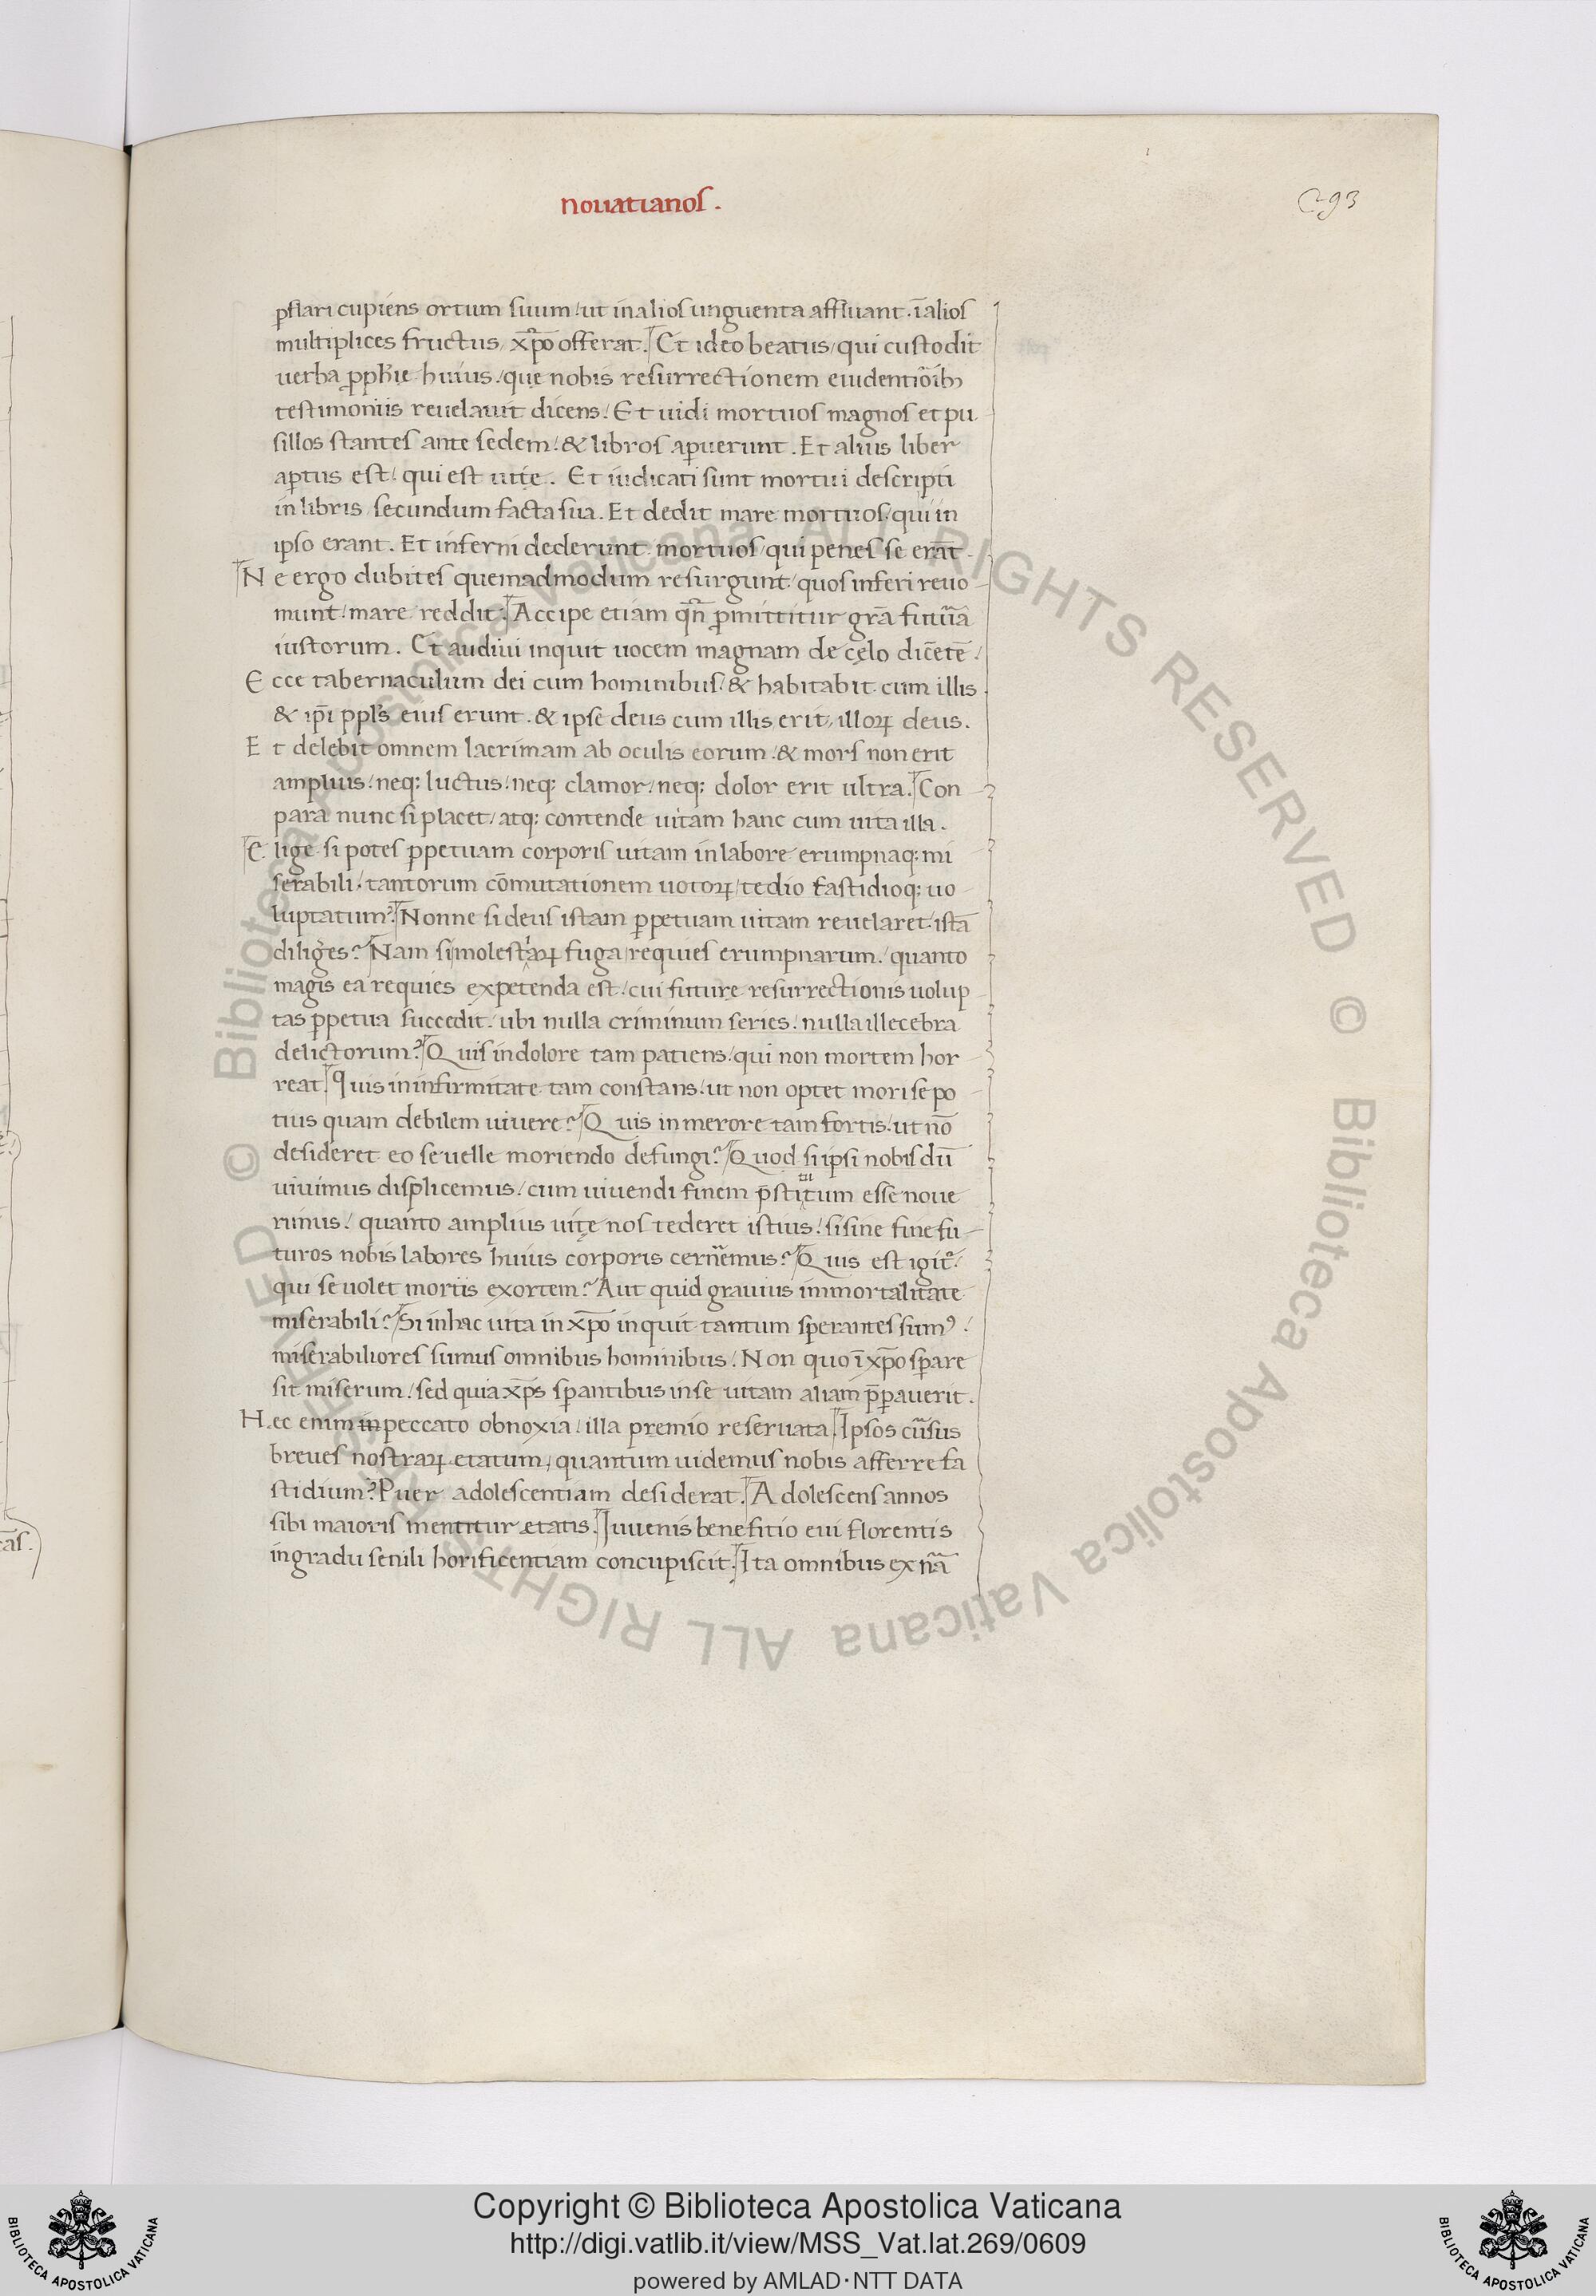 novatianos.
293
ꝑflari cupiens ortum suum / ut in alios unguenta affluant . ī alios
multiplices fructus / xp̄o offerat. Et ideo beatus / qui custodit
uerba ꝓph̄ie huius / quę nobis resurrectionem euidentiōib;
testimoniis reuelauit dicens / Et uidi mortuos magnos et pu
sillos stantes ante sedem / & libros aꝑuerunt . Et alius liber
aꝑtus est / qui est uitę . Et iudicati sunt mortui descripti
in libris / secundum facta sua . Et dedit mare mortuos / qui in
ipso erant . Et inferni dederunt mortuos / qui penes se erāt .
Ne ergo dubites quemadmodum resurgunt / quos inferi reuo
munt / mare reddit . Accipe etiam qn̄ ꝓmittitur gr̄a futura
iustorum . Et audiui inquit uocem magnam de cęlo dicētē /
Ecce tabernaculum dei cum hominibus / & habitabit cum illis .
& ip̄i ppl's eius erunt . & ipse deus cum illis erit / illoꝝ deus .
Et delebit omnem lacrimam ab oculis eorum / & mors non erit
amplius / neq; luctus / neq; clamor / neq; dolor erit ultra . Con
para nunc si placet / atq; contende uitam hanc cum uita illa .
Elige si potes ꝑpetuam corporis uitam in labore erumpnaq; mi
serabili / tantorum cōmutationem uotoꝝ / tedio fastidioq; uo
luptatum? Nonne si deus istam ꝑpetuam uitam reuelaret / istā
diliges? Nam si molestiaꝝ fuga / requies erumpnarum / quanto
magis ea requies expetenda est / cui future resurrectionis uolup
tas ꝑpetua succedit / ubi nulla criminum series / nulla illecebra
delictorum? Quis in dolore tam patiens / qui non mortem hor
reat . Quis in infirmitate tam constans / ut non optet mori se po
tius quam debilem uiuere? Quis in merore tam fortis / ut nō
desideret eo se uelle moriendo defungi? Quod si ipsi nobis dū
uiuimus displicemus / cum uiuendi finem p̄stitutum esse noue
rimus / quanto amplius uitę nos tederet istius / si sine fine fu
turos nobis labores huius corporis cernēmus? Quis est igit᷑ /
qui se uolet mortis exortem? Aut quid grauius immortalitate
miserabili? Si in hac uita in xp̄o inquit tantum sperantes sumꝰ /
miserabiliores sumus omnibus hominibus / Non quo ī xp̄o sꝑare
sit miserum / sed quia xp̄s sꝑantibus in se uitam aliam p̄ꝑauerit .
Hec enim in peccato obnoxia / illa premio reseruata . Ipsos cursus
breues nostraꝝ etatum / quantum uidemus nobis afferre fa
stidium? Puer adolescentiam desiderat . Adolescens annos
sibi maioris mentitur etatis . Iuuenis benefitio eui florentis
in gradu senili horificentiam concupiscit . Ita omnibus ex nr̄a
Copyright © Biblioteca Apostolica Vaticana
http://digi.vatlib.it/view/MSS_Vat.lat.269/0609
powered by AMLAD·NTT DATA